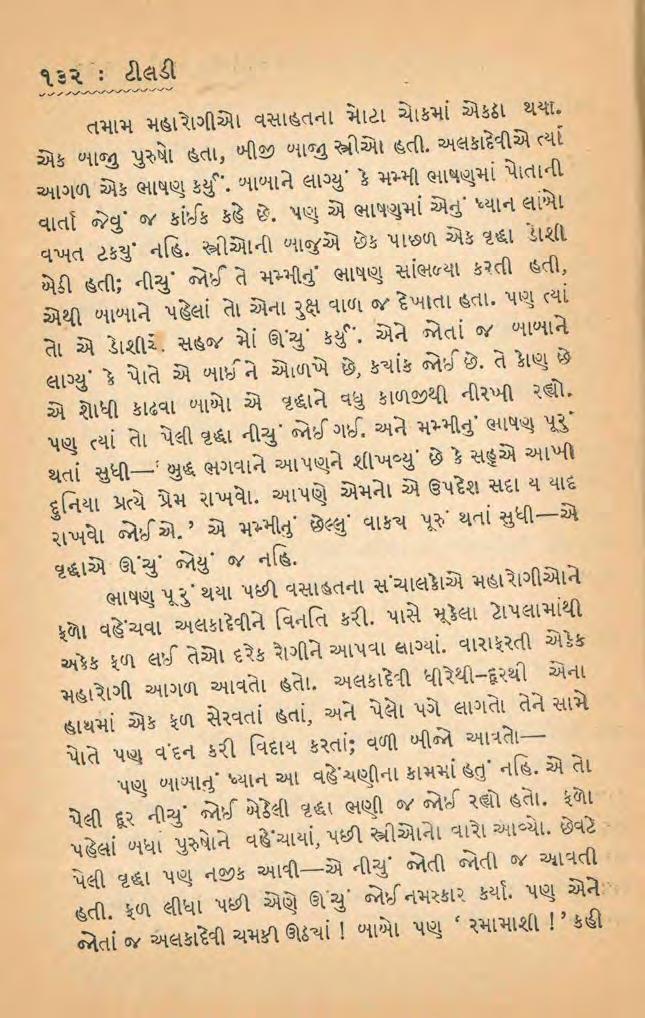 ૧૩૨ : ટીલડી
તમામ મહારોગીઓ વસાહતના મોટા ચોકમાં એકઠા થયા.
એક બાજુ પુરુષો હતા, બીજી બાજુ સ્ત્રીઓ હતી. અલકાદેવીએ ત્યાં
આગળ એક ભાષણ કર્યું. બાબાને લાગ્યું કે મમ્મી ભાષણમાં પોતાની
વાર્તા જેવું જ કાંઈક કહે છે. પણ એ ભાષણમાં એનું ધ્યાન લાંબો
વખત ટકયું નહિ. સ્ત્રીઓની બાજુએ છેક પાછળ એક વૃદ્ધા ડોશી
બેઠી હતી; નીચું જોઈ તે મમ્મીનું ભાષણ સાંભળ્યા કરતી હતી,
એથી બાબાને પહેલાં તો એના રુક્ષ વાળ જ દેખાતા હતા. પણ ત્યાં
તો એ ડોશીએ સહજ મોં ઊંચું કર્યું. એને જોતાં જ બાબાને
લાગ્યું કે પોતે એ બાઈને ઓળખે છે, કયાંક જોઈ છે. તે કોણ છે
એ શોધી કાઢવા બાબો એ વૃદ્ધાને વધુ કાળજીથી નીરખી રહ્યો.
પણ ત્યાં તો પેલી વૃદ્ધા નીચું જોઈ ગઈ. અને મમ્મીનું ભાષણ પૂરું
થતાં સુધી—‘ બુદ્ધ ભગવાને આપણને શીખવ્યું છે કે સહુએ આખી
દુનિયા પ્રત્યે પ્રેમ રાખવો. આપણે એમનો એ ઉપદેશ સદા ય યાદ
રાખવો જોઈએ.’ એ મમ્મીનું છેલ્લું વાકય પૂરું થતાં સુધી—એ
વૃદ્ધાએ ઊંચું જોયું જ નહિ.
ભાષણ પૂરું થયા પછી વસાહતના સંચાલકોએ મહારોગીઓને
ફળો વહેંચવા અલકાદેવીને વિનતિ કરી. પાસે મૂકેલા ટોપલામાંથી
અકેક ફળ લઈ તેઓ દરેક રોગીને આપવા લાગ્યાં. વારાફરતી એકેક
મહારોગી આગળ આવતો હતો. અલકાદેવી ધીરેથી-દૂરથી એના
હાથમાં એક ફળ સેરવતાં હતાં, અને પેલો પગે લાગતો તેને સામે
પોતે પણ વંદન કરી વિદાય કરતાં; વળી બીજો આવતો—
પણ બાબાનું ધ્યાન આ વહેંચણીના કામમાં હતું નહિ. એ તો
પેલી દૂર નીચું જોઈ બેઠેલી વૃદ્ધા ભણી જ જોઈ રહ્યો હતો. ફળો
પહેલાં બધા પુરુષોને વહેંચાયાં, પછી સ્ત્રીઓનો વારો આવ્યો. છેવટે
પેલી વૃદ્ધા પણ નજીક આવી—એ નીચું જોતી જોતી જ આવતી
હતી. ફળ લીધા પછી એણે ઊંચું જોઈ નમસ્કાર કર્યા. પણ એને
જોતાં જ અલકાદેવી ચમકી ઊઠયાં ! બાબો પણ ‘ રમામાશી !’ કહી